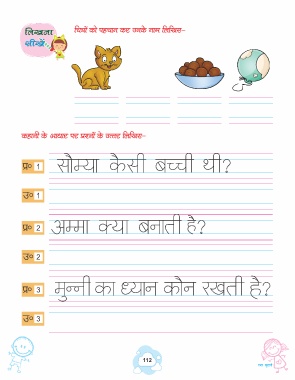 लिखना
सीखें
चित्रों को पहचान कर उनके नाम लिखिए–
कहानी के आधार पर प्रश्नों के उत्तर लिखिए–
प्र० 1 सौम्या कैसी बच्ची थी?
उ० 1
प्र० 2 अम्मा क्या बनाती है?
उ० 2
प्र० 3 मुन्नी का ध्यान कौन रखती है?
उ० 3
112